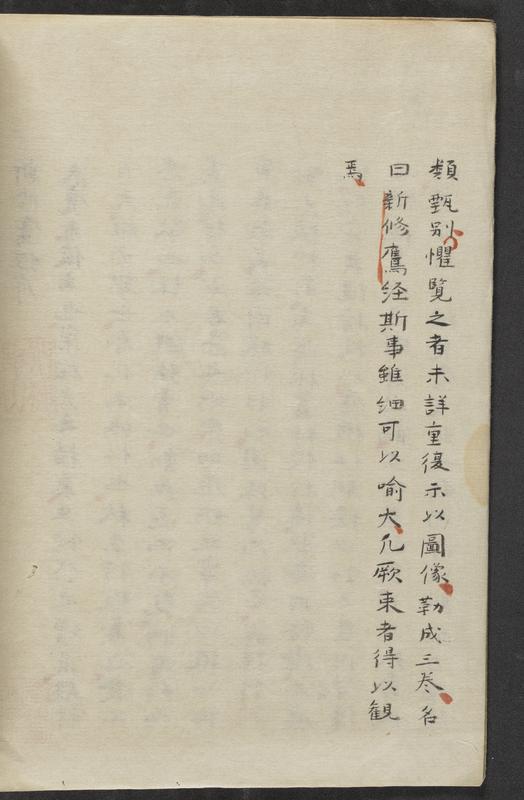 類甄別懼覧之者未詳重復示以圖像勒成三巻名
曰新修鷹経斯事雖細可以喻大凢厥来者得以観
焉